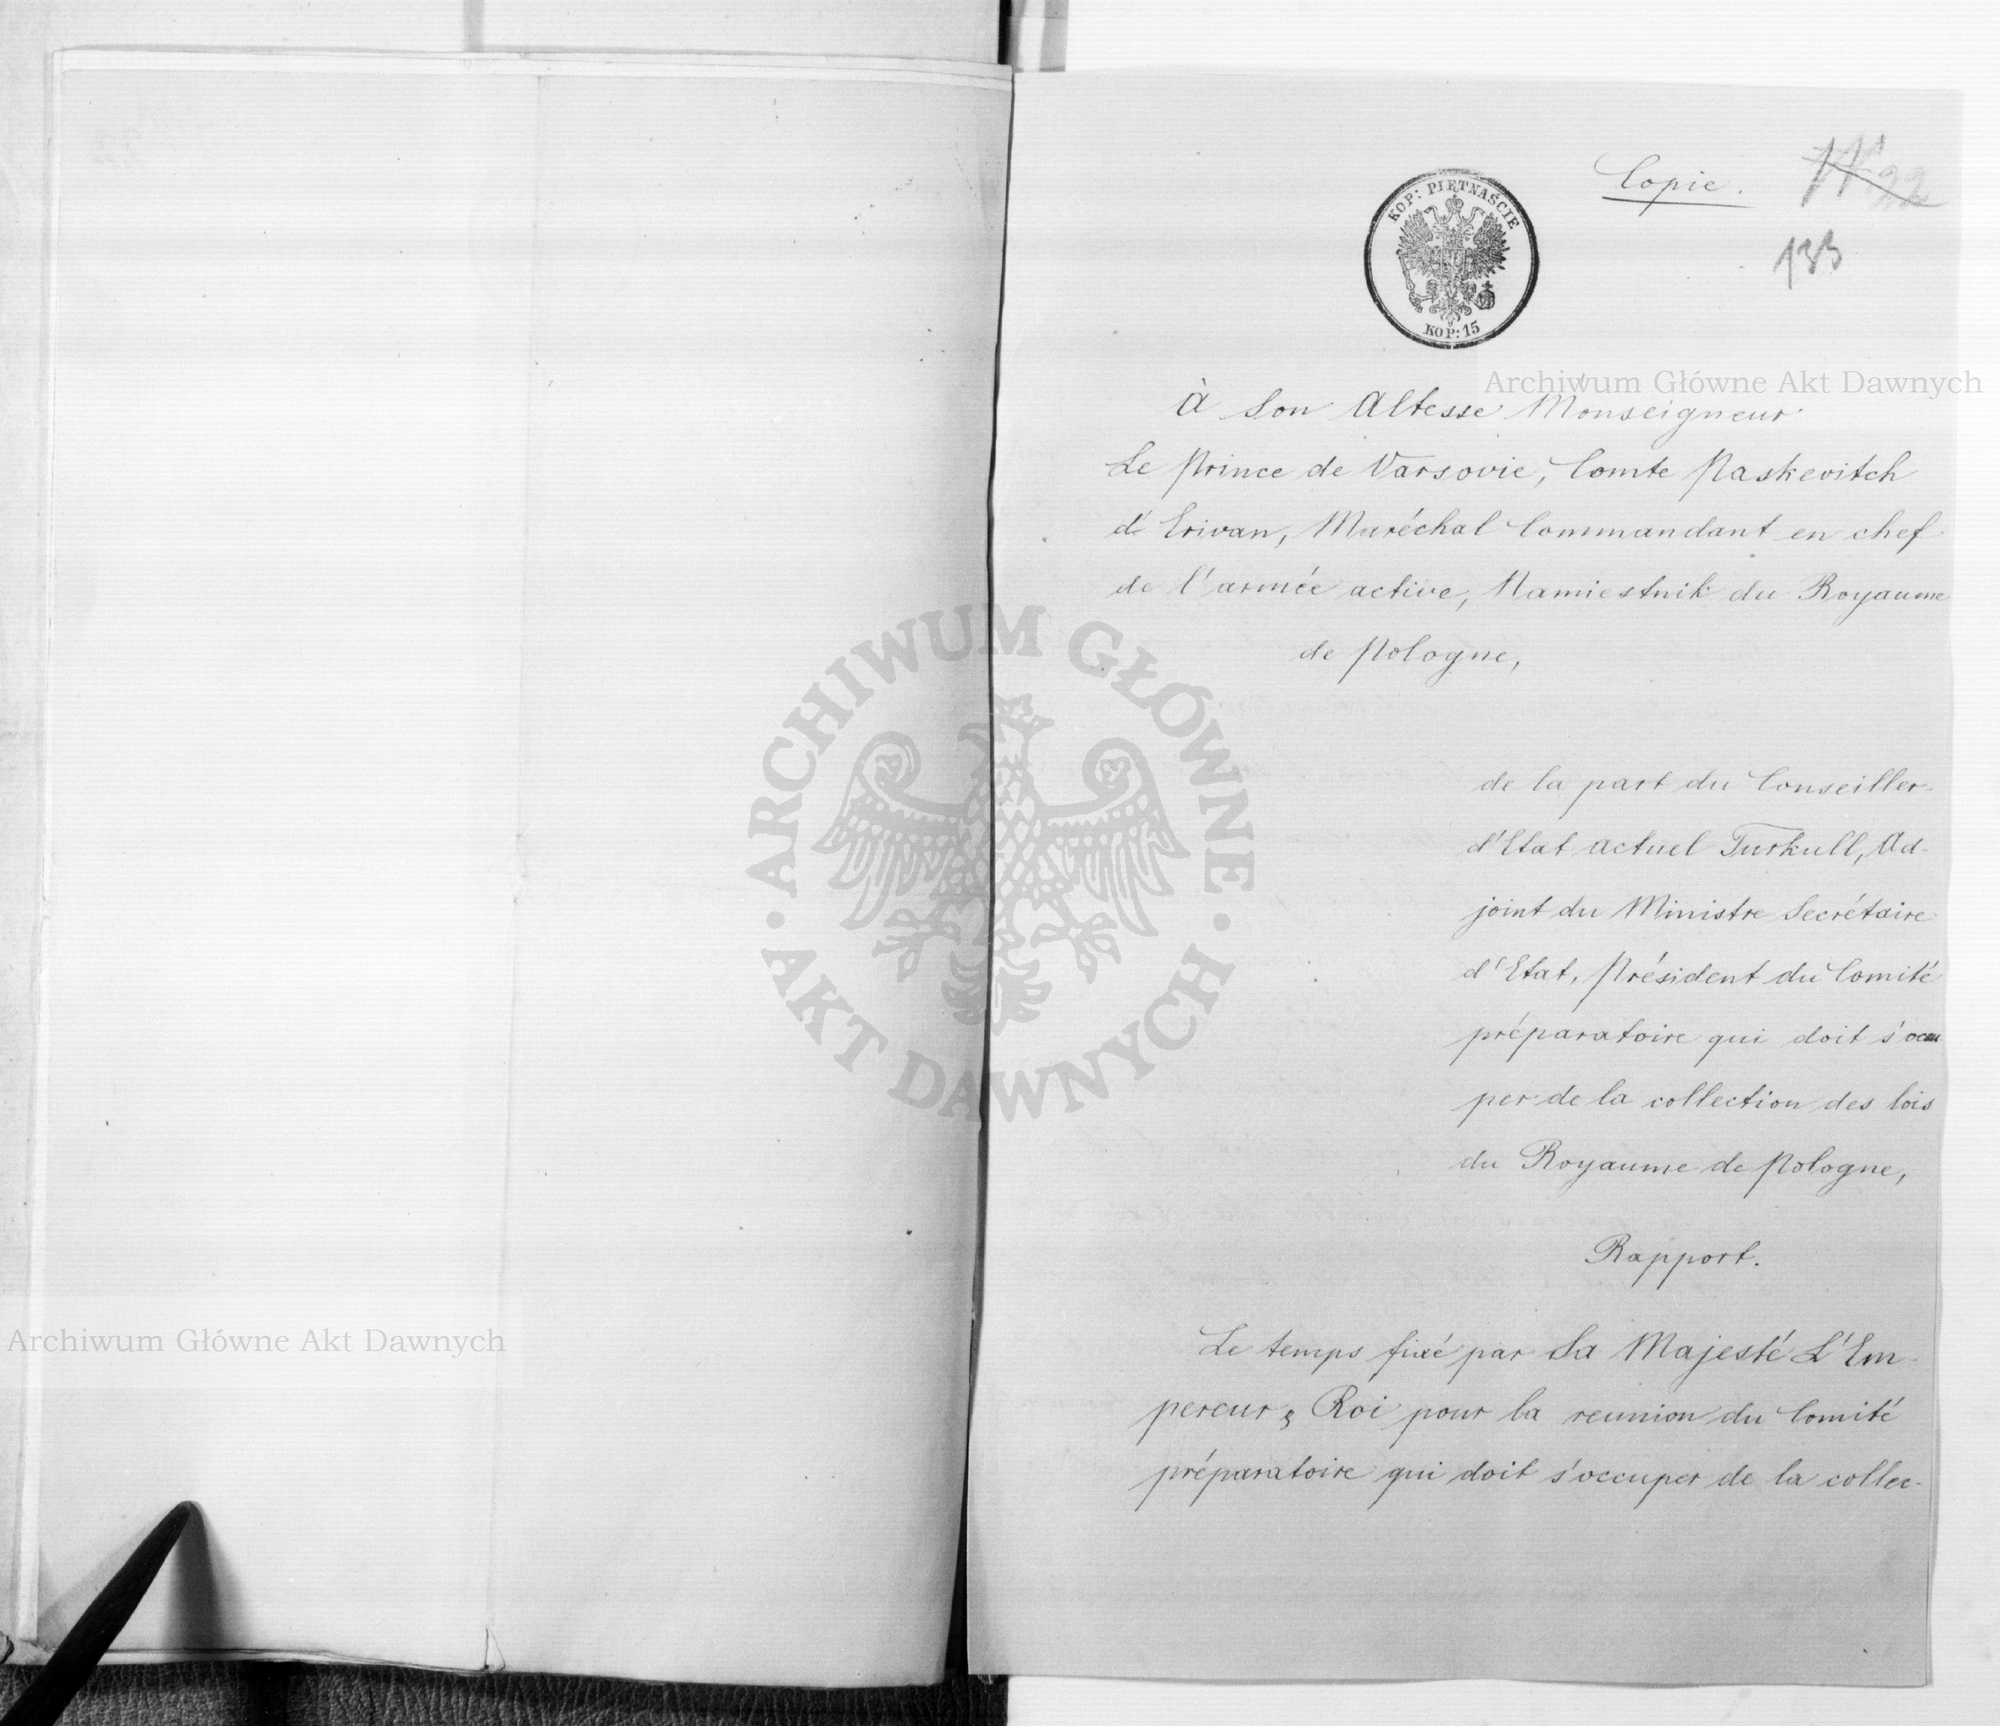 Copie.
133
KOP: PIĘTNAŚCIE
KOP: 15
Archiwum Główne Akt Dawnych
À Son Altesse Monseigneur
Le Prince de Varsovie, Comte Paskevitch
d'Erivan, Maréchal Commandant en chef
de l'armée active, Namiestnik du Royaume
de Pologne,
ARCHIWUM GŁÓWNE AKT DAWNYCH
de la part du Conseiller
d'Etat actuel Turkull, Ad-
joint du Ministre Secrétaire
d'Etat, Président du Comité
préparatoire qui doit s'occu
per de la collection des lois
du Royaume de Pologne,
Rapport.
Archiwum Główne Akt Dawnych
Le temps fixé par Sa Majesté L'Em-
pereur & Roi pour la reunion du Comité
préparatoire qui doit s'occuper de la collec-